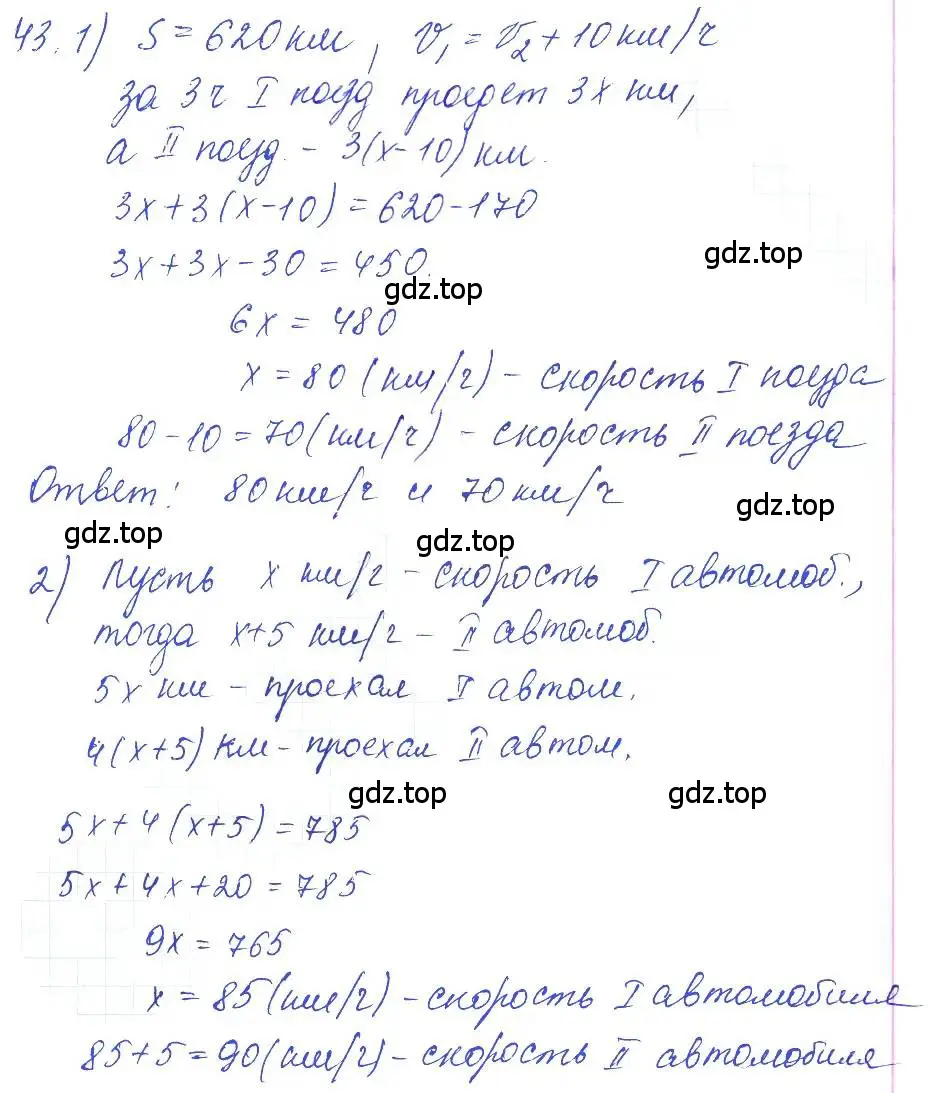 43. 1) S = 620 км, V₁ = V₂ + 10 км/ч
за 3 ч I поезд проедет 3x км,
а II поезд - 3(x-10) км.
3x + 3(x-10) = 620-170
3x + 3x - 30 = 450.
gdz.top
gdz.top
6x = 480
x = 80 (км/ч) - скорость I поезда
80-10 = 70 (км/ч) - скорость II поезда
Ответ: 80 км/ч и 70 км/ч
gdz.top
gdz.top
gdz.top
2) Пусть x км/ч - скорость I автомоб.,
тогда x+5 км/ч - II автомоб.
5x км - проехал I автом.
4(x+5) км - проехал II автом.
gdz.top
gdz.top
5x + 4(x+5) = 785
5x + 4x + 20 = 785
9x = 765
x = 85 (км/ч) - скорость I автомобиля
85+5 = 90 (км/ч) - скорость II автомобиля